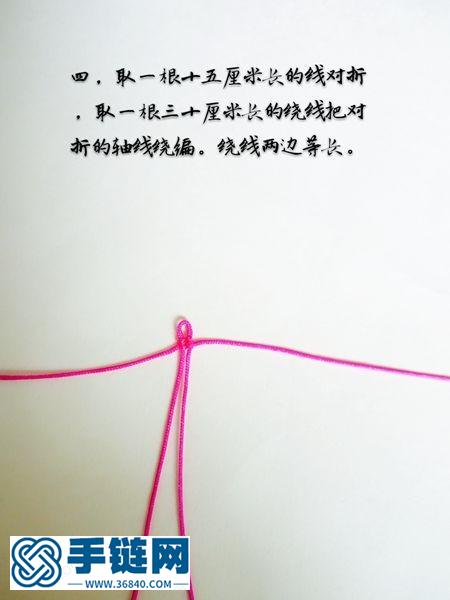 四，取一根十五厘米长的线对折
，取一根三十厘米长的绕线把对
折的轴线绕编。绕线两边等长。
手链网
WWW.36840.COM